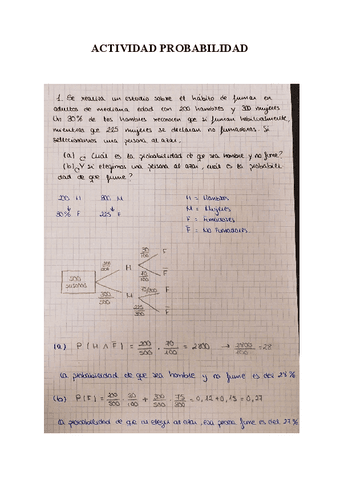 ACTIVIDAD PROBABILIDAD
1. Se realiza un estudio sobre el hábito de fumar en
adultos de mediana edad con 200 hombres y 300 mujeres
Un 30% de los hombres reconocen que sí fuman habitualmente,
mientras que 225 mujeres se declaran no fumadoras. Si
seleccionamos una persona al azar,
(a) ¿Cuál es la probabilidad de que sea hombre y no fume?
(b) ¿Y si elegimos una persona al azar, cuál es la probabili
dad de que fume?
200 H 300 M H = Hombres
M = Mujeres
30% F 225 F̅ F = Fumadores
F̅ = No Fumadores
F
200/500 H
F̅
300/500 M
F
F̅
(a) P(H ∧ F̅) = 200/500 · 70/100 = 2800 →
La probabilidad de que sea hombre y no fume es del 28%
(b) P(F) = 200/500 · 30/100 + 300/500 · = 0,12 + 0,15 = 0,27
La probabilidad de que al azar, esa persona fume es del 27%